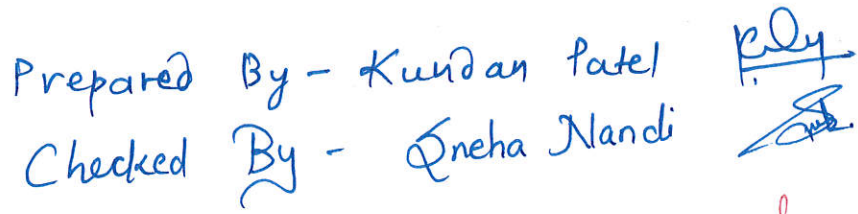 Prepared By - Kundan Patel
Checked By - Sneha Nandi